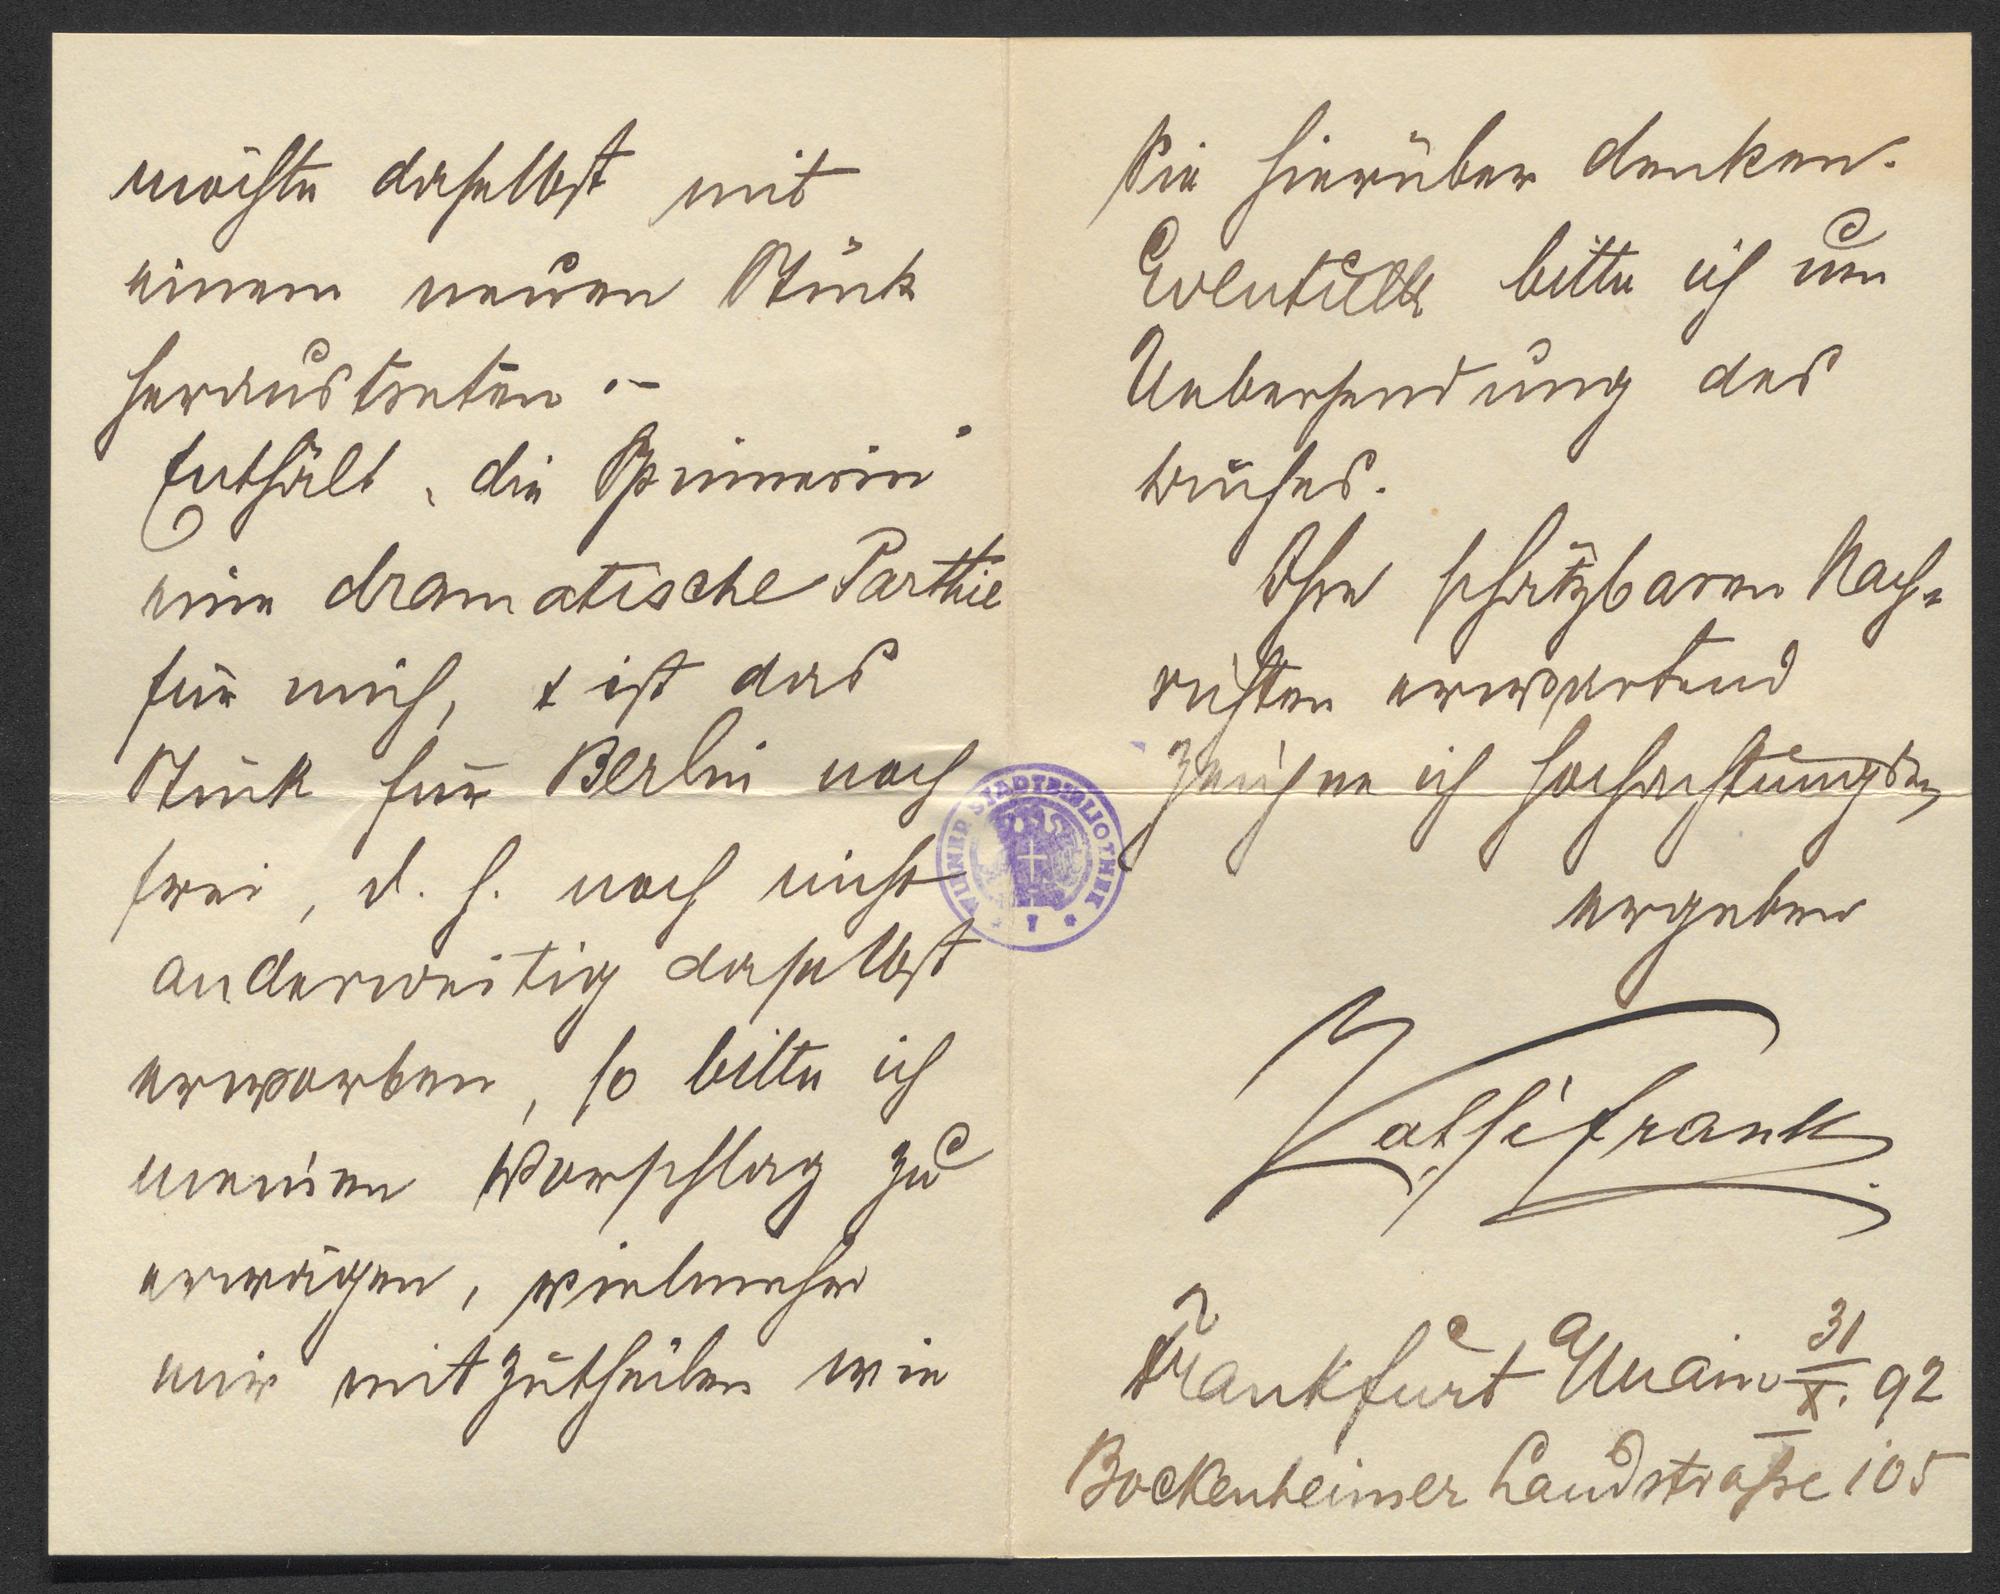 möchte daselbst mit
einem neuen Stück
heraustreten. –
Enthält „die Spinnerin"
eine dramatische Parthie
für mich, & ist das
Stück für Berlin noch
frei, d. h. noch nicht
anderweitig daselbst
erworben, so bitte ich
meinen Vorschlag zu
erwägen, vielmehr
mir mitzutheilen wie
Sie hierüber denken.
Eventuell bitte ich um
Uebersendung des
Buches.
Ihre schätzbaren Nach-
richten erwartend
zeichne ich hochachtungsv.
ergeben
Kathi Frank
Frankfurt a Main 31/X. 92
Bockenheimer Landstraße 105
WIENER STADTBIBLIOTHEK